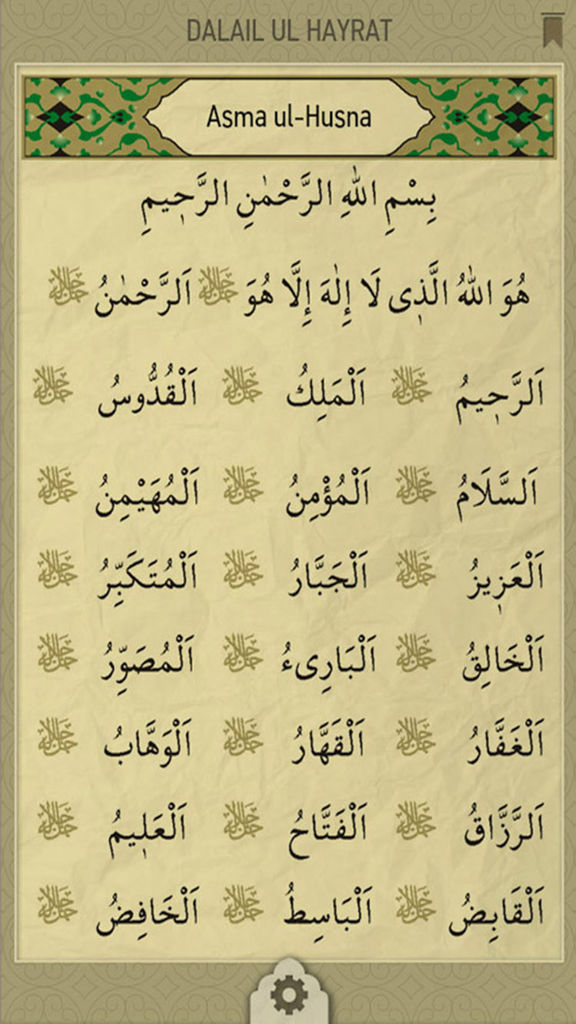 DALAIL UL HAYRAT
Asma ul-Husna
بِسْمِ اللهِ الرَّحْمٰنِ الرَّحِيمِ
هُوَ اللهُ الَّذِى لَا إِلٰهَ إِلَّا هُوَ جل جلاله اَلرَّحْمٰنُ جل جلاله
اَلرَّحِيمُ جل جلاله اَلْمَلِكُ جل جلاله اَلْقُدُّوسُ جل جلاله
اَلسَّلَامُ جل جلاله اَلْمُؤْمِنُ جل جلاله اَلْمُهَيْمِنُ جل جلاله
اَلْعَزِيزُ جل جلاله اَلْجَبَّارُ جل جلاله اَلْمُتَكَبِّرُ جل جلاله
اَلْخَالِقُ جل جلاله اَلْبَارِىءُ جل جلاله اَلْمُصَوِّرُ جل جلاله
اَلْغَفَّارُ جل جلاله اَلْقَهَّارُ جل جلاله اَلْوَهَّابُ جل جلاله
اَلرَّزَّاقُ جل جلاله اَلْفَتَّاحُ جل جلاله اَلْعَلِيمُ جل جلاله
اَلْقَابِضُ جل جلاله اَلْبَاسِطُ جل جلاله اَلْخَافِضُ جل جلاله